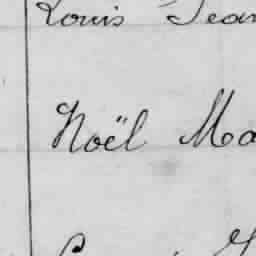 Louis Jean
Noël Ma